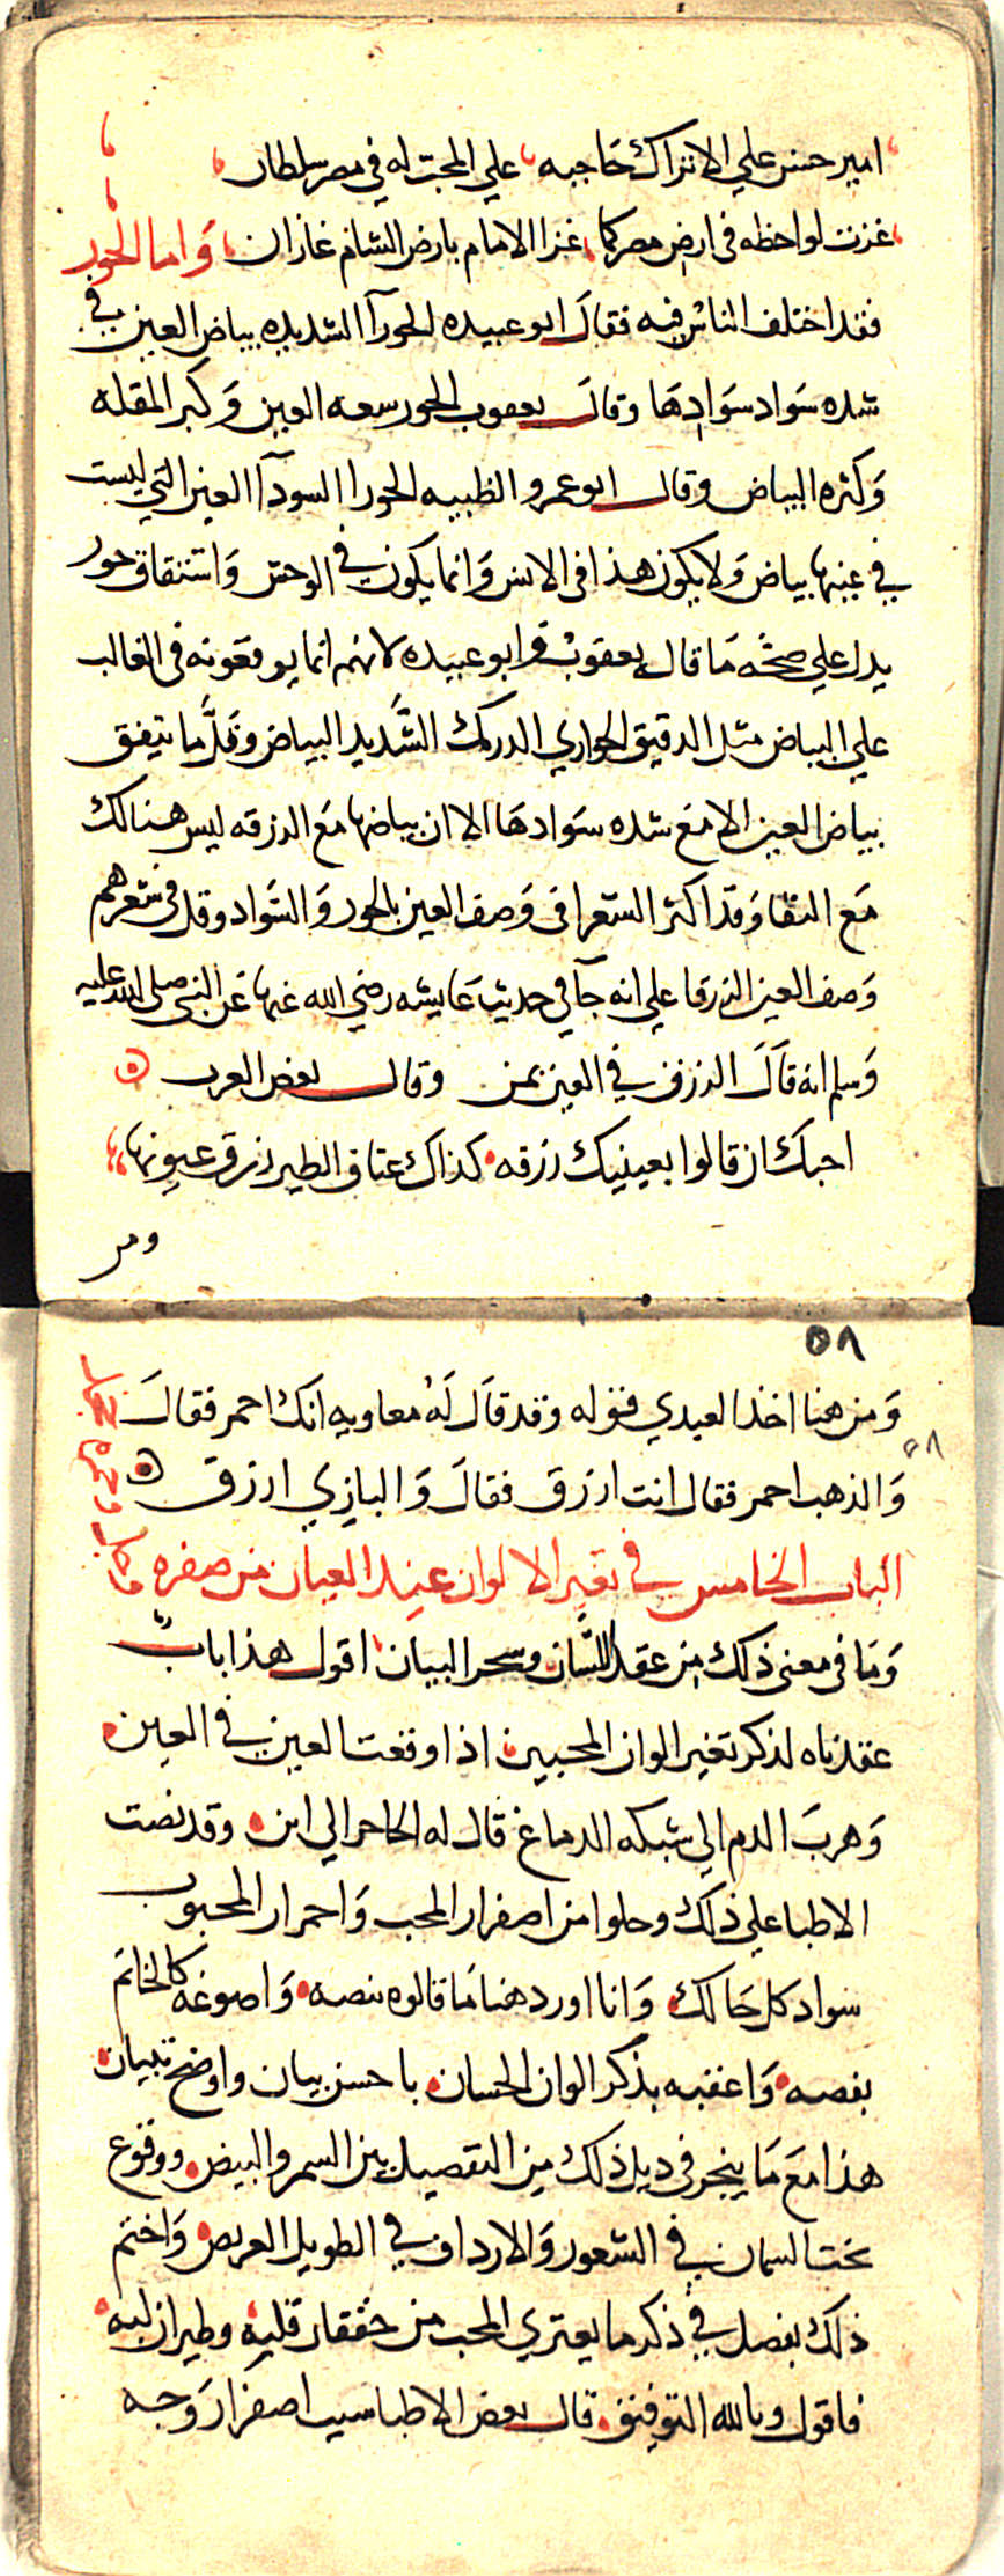 امير حسن علي الاتراك حاجبه علي المحب له في مصر سلطان
غزت لواحظه في ارض مصر كما غزا الامام بارض الشام غازان واما الحور
فقد اختلف الناس فيه فقال ابو عبيده الحورآ الشديده بياض العين في
شده سواد سوادها وقال يعقوب الحور سعه العين وكبر المقله
وكثره البياض وقال ابو عمرو الظبيه الحورا السودآ العين التي ليست
في عينها بياض ولا يكون هذا في الانس وانما يكون في الوحش واشتقاق حور
يدل علي صحه ما قال يعقوب وابو عبيده لانهم انما يوقعونه في الغالب
علي البياض مثل الدقيق الحواري الدرمك الشديد البياض وقلّ ما يتفق
بياض العين الا مع شده سوادها الا ان بياضها مع الزرقه ليس هنالك
مع النقا وقد اكثر الشعرا في وصف العين بالحور والسواد وقل في شعرهم
وصف العين الزرقا علي انه جآ في حديث عايشه رضي الله عنها عن النبي صلى الله عليه
وسلم انه قال الزرق في العين يمن وقال بعض العرب
احبك ان قالوا بعينيك زرقه كذاك عتاق الطير زرق عيونها
ومن
٥٨
ومن هنا اخذ العبدي قوله وقد قال له معاويه انك احمر فقال
٥٨
والذهب احمر فقال انت ازرق فقال والبازي ازرق
الباب الخامس في تغير الالوان عند العيان من صفره
وما في معنى ذلك من عقد اللسان وسحر البيان اقول هذا باب
عقدناه لذكر تغير الوان المحبين اذا وقعت العين في العين
وهرب الدم الي شبكه الدماغ قال له الحاحر الي اين وقد نصت
الاطبا علي ذلك وحلوا من اصفرار المحب واحمرار المحبوب
سواد كل حالك وانا اورد هنا ما قالوه بنصه واصوغه كالخاتم
بفصه واعقبه بذكر الوان الحسان باحسن بيان واوضح تبيان
هذا مع ما ينجر في ديل ذلك من التفصيل بين السمر والبيض ووقوع
تحت السمان في الشعور والارداف في الطويل العريض واختم
ذلك بفصل في ذكر ما يعتري المحب من خفقان قلبه وطيران لبه
فاقول وبالله التوفيق قال بعض الاطبا سبب اصفرار وجه